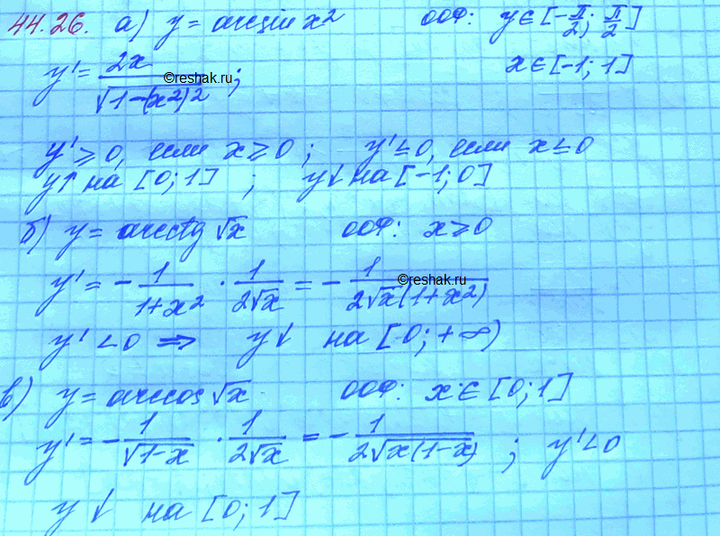 44.26. а) y = arcsin x² ООФ: y ∈ [-π/2; π/2]
y' = 2x / √(1-(x²)²); x ∈ [-1; 1]
©reshak.ru
y' ≥ 0, если x ≥ 0; y' ≤ 0, если x ≤ 0
y↑ на [0; 1]; y↓ на [-1; 0]
б) y = arcctg √x ООФ: x ≥ 0
y' = - 1/(1+x²) · 1/(2√x) = - 1/(2√x(1+x²))
©reshak.ru
y' < 0 ⇒ y↓ на [0; +∞)
в) y = arccos √x ООФ: x ∈ [0; 1]
y' = - 1/√(1-x) · 1/(2√x) = - 1/(2√x(1-x)); y' < 0
y↓ на [0; 1]